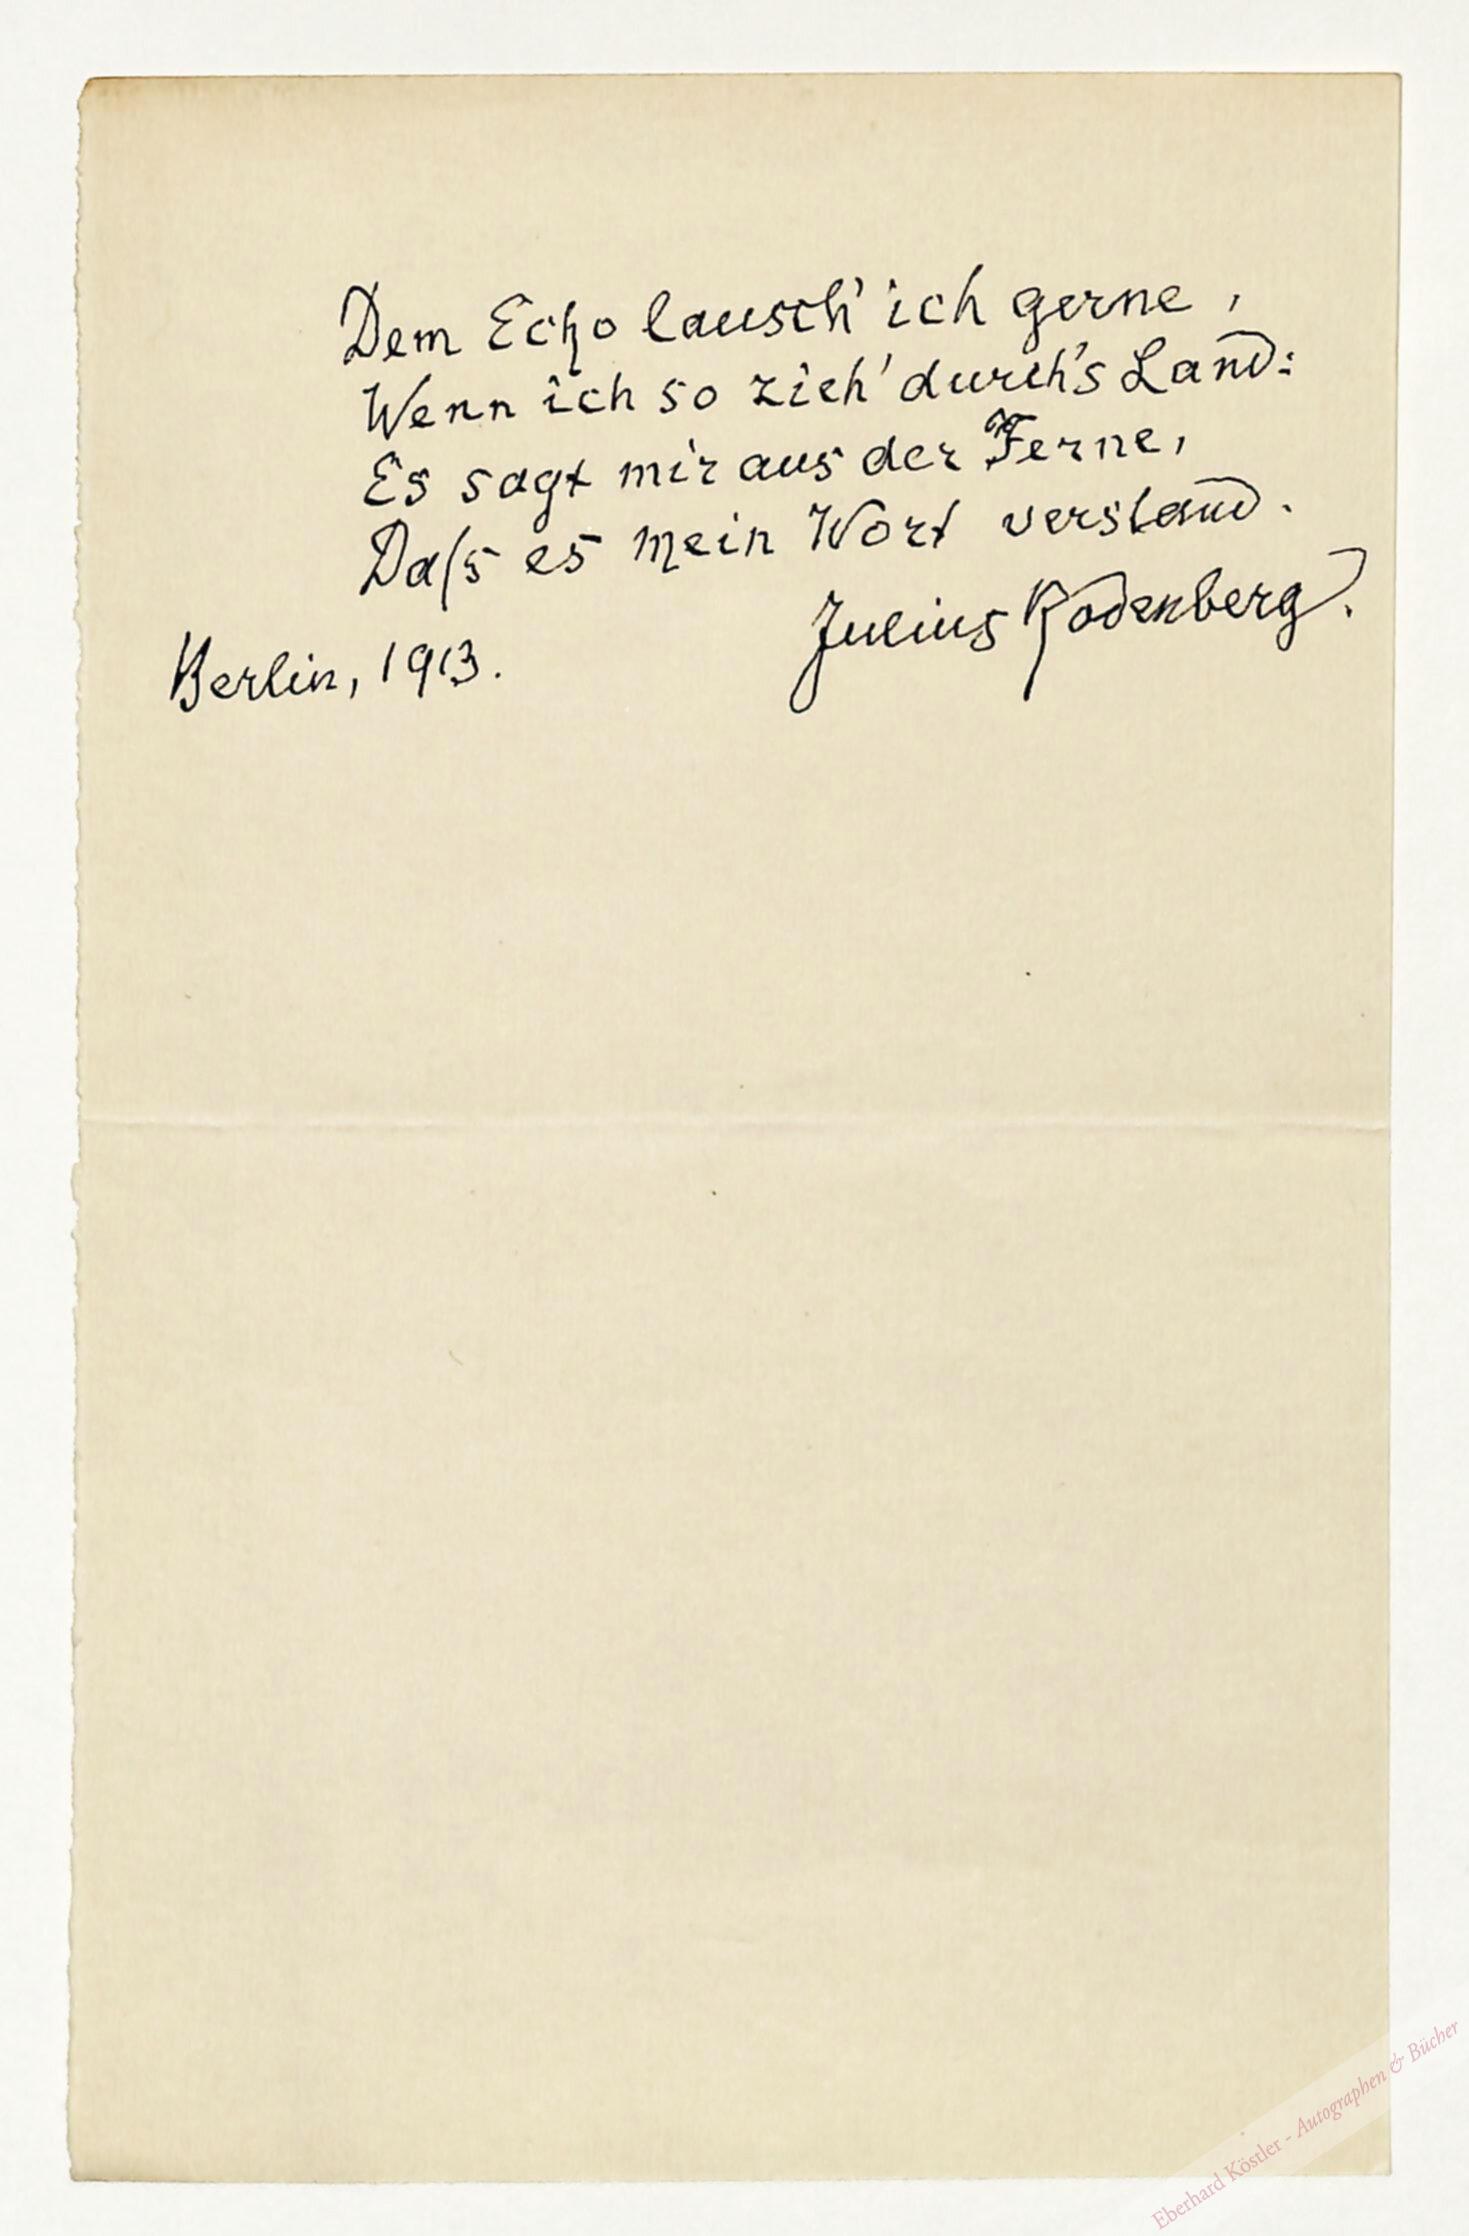 Dem Echo lausch' ich gerne,
Wenn ich so zieh' durch's Land:
Es sagt mir aus der Ferne,
Daſs es mein Wort verstand.
Julius Rodenberg.
Berlin, 1913.
Eberhard Köstler - Autographen & Bücher